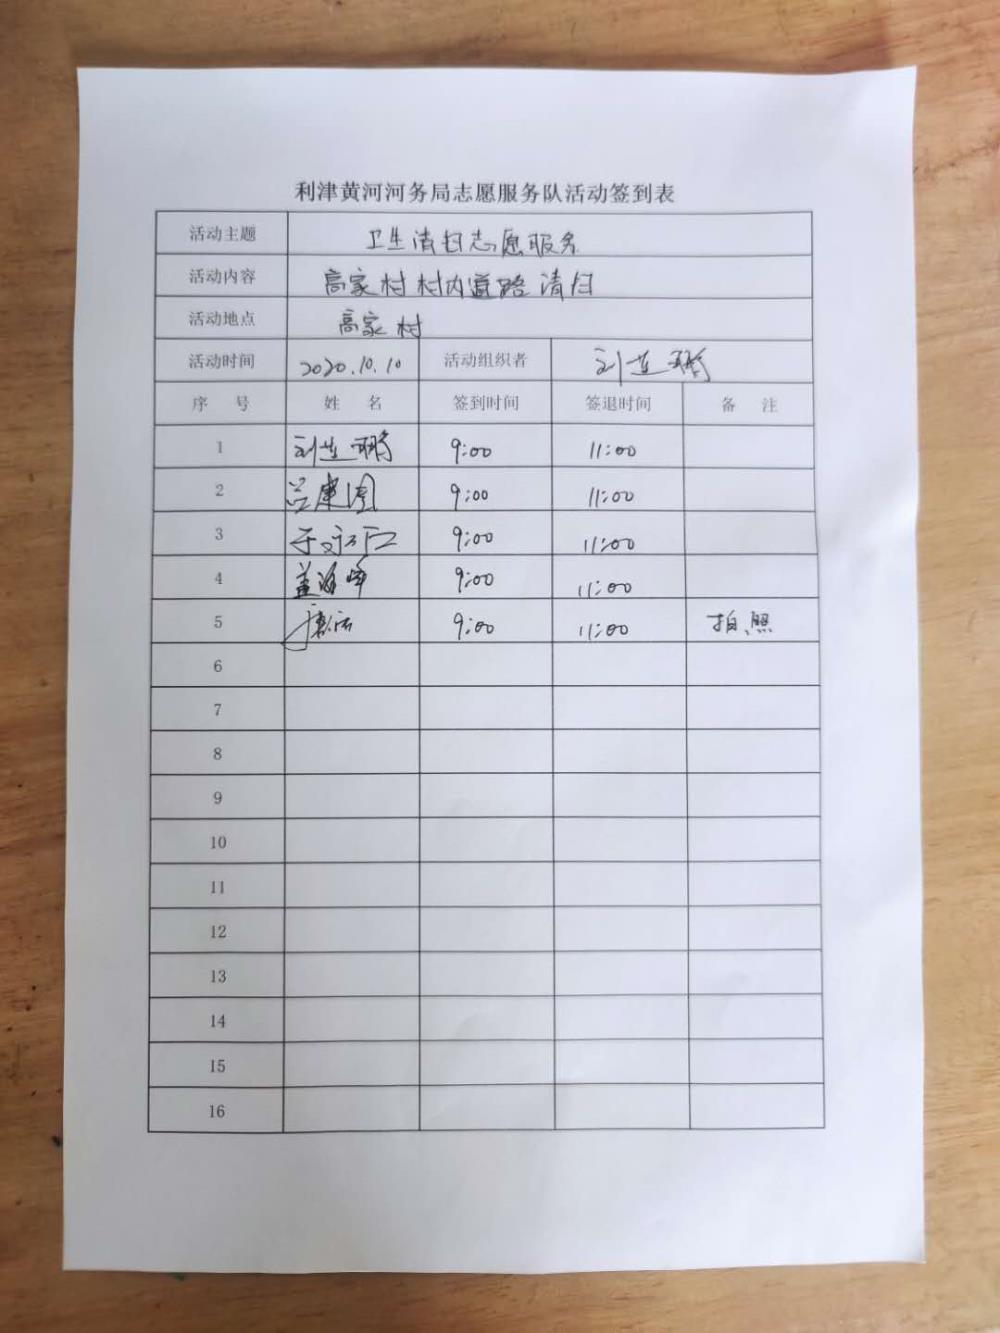 利津黄河河务局志愿服务队活动签到表
活动主题 卫生清扫志愿服务
活动内容 高家村村内道路清扫
活动地点 高家村
活动时间 2020.10.10 活动组织者 刘连鹏
序 号 姓 名 签到时间 签退时间 备 注
1 刘连鹏 9:00 11:00
2 9:00 11:00
3 9:00 11:00
4 盖海峰 9:00 11:00
5 9:00 11:00 拍照
6
7
8
9
10
11
12
13
14
15
16